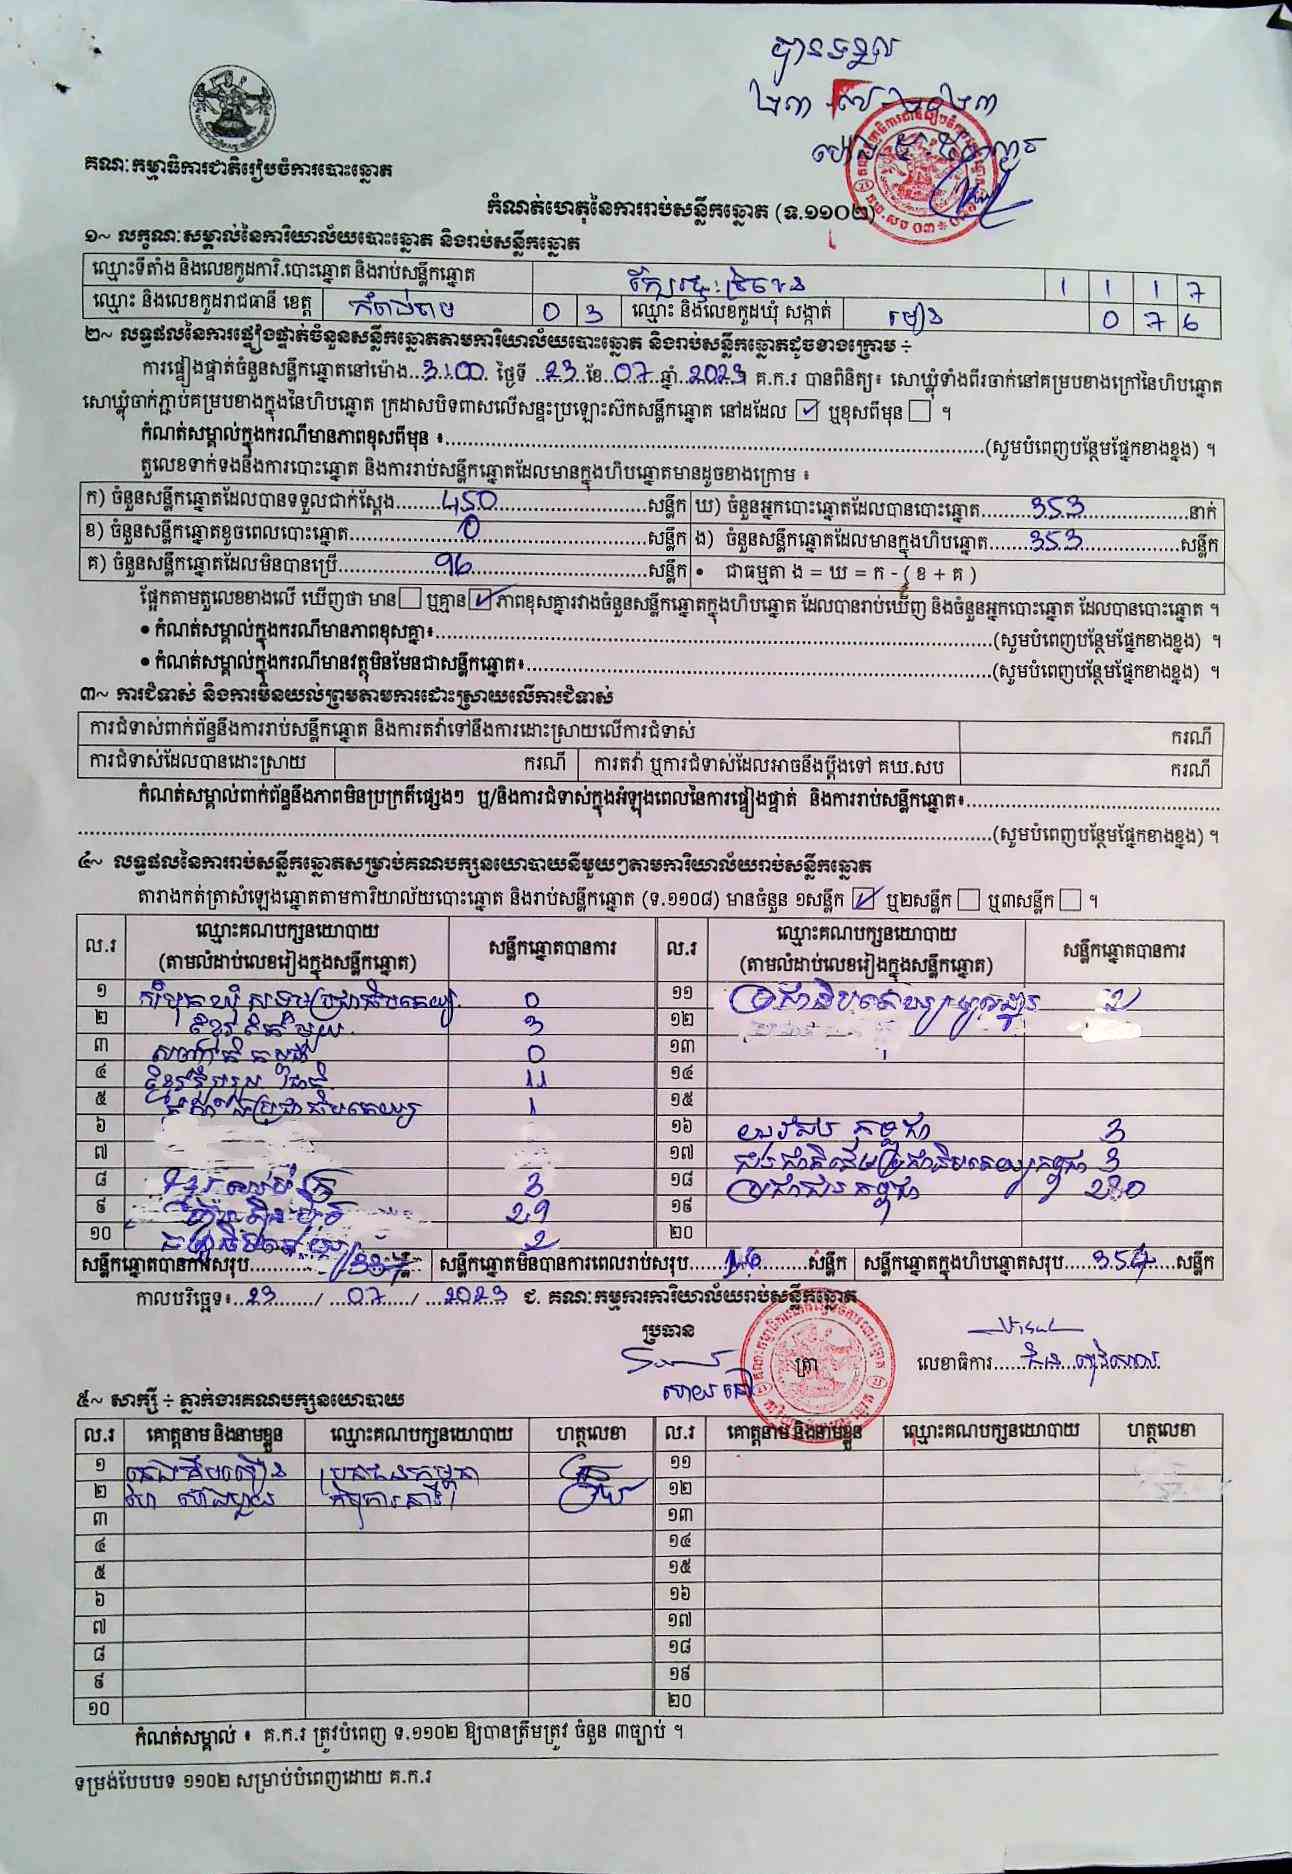 បានទទួល
គណៈកម្មាធិការជាតិរៀបចំការបោះឆ្នោត
កំណត់ហេតុនៃការរាប់សន្លឹកឆ្នោត (ទ.១១០២)
១~ លក្ខណៈសម្គាល់នៃការិយាល័យបោះឆ្នោត និងរាប់សន្លឹកឆ្នោត
ឈ្មោះទីតាំង និងលេខកូដការិ.បោះឆ្នោត និងរាប់សន្លឹកឆ្នោត 1 1 1 7
ឈ្មោះ និងលេខកូដរាជធានី ខេត្ត កំពង់ចាម 0 3 ឈ្មោះ និងលេខកូដឃុំ សង្កាត់ មៀន 0 7 6
២~ លទ្ធផលនៃការផ្ទៀងផ្ទាត់ចំនួនសន្លឹកឆ្នោតតាមការិយាល័យបោះឆ្នោត និងរាប់សន្លឹកឆ្នោតដូចខាងក្រោម ÷
ការផ្ទៀងផ្ទាត់ចំនួនសន្លឹកឆ្នោតនៅម៉ោង..3:00. ថ្ងៃទី ..23..ខែ..07..ឆ្នាំ..2023 គ.ក.រ បានពិនិត្យ៖ សោឃ្លុំទាំងពីរចាក់នៅគម្របខាងក្រៅនៃហិបឆ្នោត
សោឃ្លុំចាក់ភ្ជាប់គម្របខាងក្នុងនៃហិបឆ្នោត ក្រដាសបិទពាសលើសន្ទះប្រឡោះស៊កសន្លឹកឆ្នោត នៅដដែល ☑ ឬខុសពីមុន ☐ ។
កំណត់សម្គាល់ក្នុងករណីមានភាពខុសពីមុន ៖..........(សូមបំពេញបន្ថែមផ្នែកខាងខ្នង) ។
តួលេខទាក់ទងនឹងការបោះឆ្នោត និងការរាប់សន្លឹកឆ្នោតដែលមានក្នុងហិបឆ្នោតមានដូចខាងក្រោម ៖
ក) ចំនួនសន្លឹកឆ្នោតដែលបានទទួលជាក់ស្តែង.....450.....សន្លឹក ឃ) ចំនួនអ្នកបោះឆ្នោតដែលបានបោះឆ្នោត.....353.....នាក់
ខ) ចំនួនសន្លឹកឆ្នោតខូចពេលបោះឆ្នោត.....0.....សន្លឹក ង) ចំនួនសន្លឹកឆ្នោតដែលមានក្នុងហិបឆ្នោត.....353.....សន្លឹក
គ) ចំនួនសន្លឹកឆ្នោតដែលមិនបានប្រើ.....96.....សន្លឹក • ជាធម្មតា ង = ឃ = ក - ( ខ + គ )
ផ្អែកតាមតួលេខខាងលើ ឃើញថា មាន ☐ ឬគ្មាន ☑ ភាពខុសគ្នារវាងចំនួនសន្លឹកឆ្នោតក្នុងហិបឆ្នោត ដែលបានរាប់ឃើញ និងចំនួនអ្នកបោះឆ្នោត ដែលបានបោះឆ្នោត ។
• កំណត់សម្គាល់ក្នុងករណីមានភាពខុសគ្នា៖..........(សូមបំពេញបន្ថែមផ្នែកខាងខ្នង) ។
• កំណត់សម្គាល់ក្នុងករណីមានវត្ថុមិនមែនជាសន្លឹកឆ្នោត៖..........(សូមបំពេញបន្ថែមផ្នែកខាងខ្នង) ។
៣~ ការជំទាស់ និងការមិនយល់ព្រមតាមការដោះស្រាយលើការជំទាស់
ការជំទាស់ពាក់ព័ន្ធនឹងការរាប់សន្លឹកឆ្នោត និងការតវ៉ាទៅនឹងការដោះស្រាយលើការជំទាស់ ករណី
ការជំទាស់ដែលបានដោះស្រាយ ករណី ការតវ៉ា ឬការជំទាស់ដែលអាចនឹងប្តឹងទៅ គឃ.សប ករណី
កំណត់សម្គាល់ពាក់ព័ន្ធនឹងភាពមិនប្រក្រតីផ្សេងៗ ឬ/និងការជំទាស់ក្នុងអំឡុងពេលនៃការផ្ទៀងផ្ទាត់ និងការរាប់សន្លឹកឆ្នោត៖..........
..........(សូមបំពេញបន្ថែមផ្នែកខាងខ្នង) ។
៤~ លទ្ធផលនៃការរាប់សន្លឹកឆ្នោតសម្រាប់គណបក្សនយោបាយនីមួយៗតាមការិយាល័យរាប់សន្លឹកឆ្នោត
តារាងកត់ត្រាសំឡេងឆ្នោតតាមការិយាល័យបោះឆ្នោត និងរាប់សន្លឹកឆ្នោត (ទ.១១០៨) មានចំនួន ១សន្លឹក ☑ ឬ២សន្លឹក ☐ ឬ៣សន្លឹក ☐ ។
ល.រ ឈ្មោះគណបក្សនយោបាយ (តាមលំដាប់លេខរៀងក្នុងសន្លឹកឆ្នោត) សន្លឹកឆ្នោតបានការ ល.រ ឈ្មោះគណបក្សនយោបាយ (តាមលំដាប់លេខរៀងក្នុងសន្លឹកឆ្នោត) សន្លឹកឆ្នោតបានការ
១ 0 ១១ ប្រជាធិបតេយ្យមូលដ្ឋាន 2
២ ខ្មែរតែមួយ 3 ១២
៣ 0 ១៣
៤ ខ្មែររួបរួមជាតិ 11 ១៤
៥ 1 ១៥
៦ ១៦ យុវជនកម្ពុជា 3
៧ ១៧ 3
៨ 3 ១៨ ប្រជាជនកម្ពុជា 280
៩ 29 ១៩
១០ 2 ២០
សន្លឹកឆ្នោតបានការសរុប.....337 សន្លឹកឆ្នោតមិនបានការពេលរាប់សរុប..........សន្លឹក សន្លឹកឆ្នោតក្នុងហិបឆ្នោតសរុប..........សន្លឹក
កាលបរិច្ឆេទ៖..23../..07../..2023 ជ. គណៈកម្មការការិយាល័យរាប់សន្លឹកឆ្នោត
ប្រធាន
ត្រា
លេខាធិការ
៥~ សាក្សី ÷ ភ្នាក់ងារគណបក្សនយោបាយ
ល.រ គោត្តនាម និងនាមខ្លួន ឈ្មោះគណបក្សនយោបាយ ហត្ថលេខា ល.រ គោត្តនាម និងនាមខ្លួន ឈ្មោះគណបក្សនយោបាយ ហត្ថលេខា
១ ប្រជាជនកម្ពុជា ១១
២ ១២
៣ ១៣
៤ ១៤
៥ ១៥
៦ ១៦
៧ ១៧
៨ ១៨
៩ ១៩
១០ ២០
កំណត់សម្គាល់ ៖ គ.ក.រ ត្រូវបំពេញ ទ.១១០២ ឱ្យបានត្រឹមត្រូវ ចំនួន ៣ច្បាប់ ។
ទម្រង់បែបបទ ១១០២ សម្រាប់បំពេញដោយ គ.ក.រ